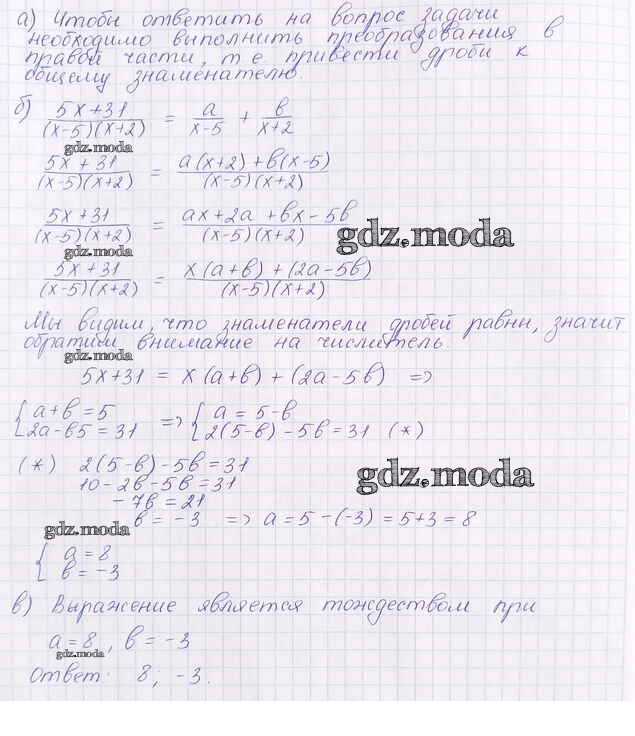 а) Чтобы ответить на вопрос задачи
необходимо виполнить преобразования в
правой части, т е привести дроби к
общему знаменателю.
б) (5x+31)/((x-5)(x+2)) = a/(x-5) + в/(x+2)
gdz.moda
(5x+31)/((x-5)(x+2)) = (a(x+2)+в(x-5))/((x-5)(x+2))
(5x+31)/((x-5)(x+2)) = (ax+2a+вx-5в)/((x-5)(x+2))
gdz.moda
gdz.moda
(5x+31)/((x-5)(x+2)) = (x(a+в)+(2a-5в))/((x-5)(x+2))
Мы видим, что знаменатели дробей равны, значит
обратим внимание на числитель
gdz.moda
5x+31 = x(a+в)+(2a-5в) =>
{a+в=5 => {a=5-в
2a-в5=31 2(5-в)-5в=31 (*)
(*) 2(5-в)-5в=31
10-2в-5в=31
gdz.moda
-7в=21
gdz.moda
в=-3 => a=5-(-3)=5+3=8
{a=8
в=-3
в) Выражение является тождеством при
a=8, в=-3
gdz.moda
Ответ: 8; -3.